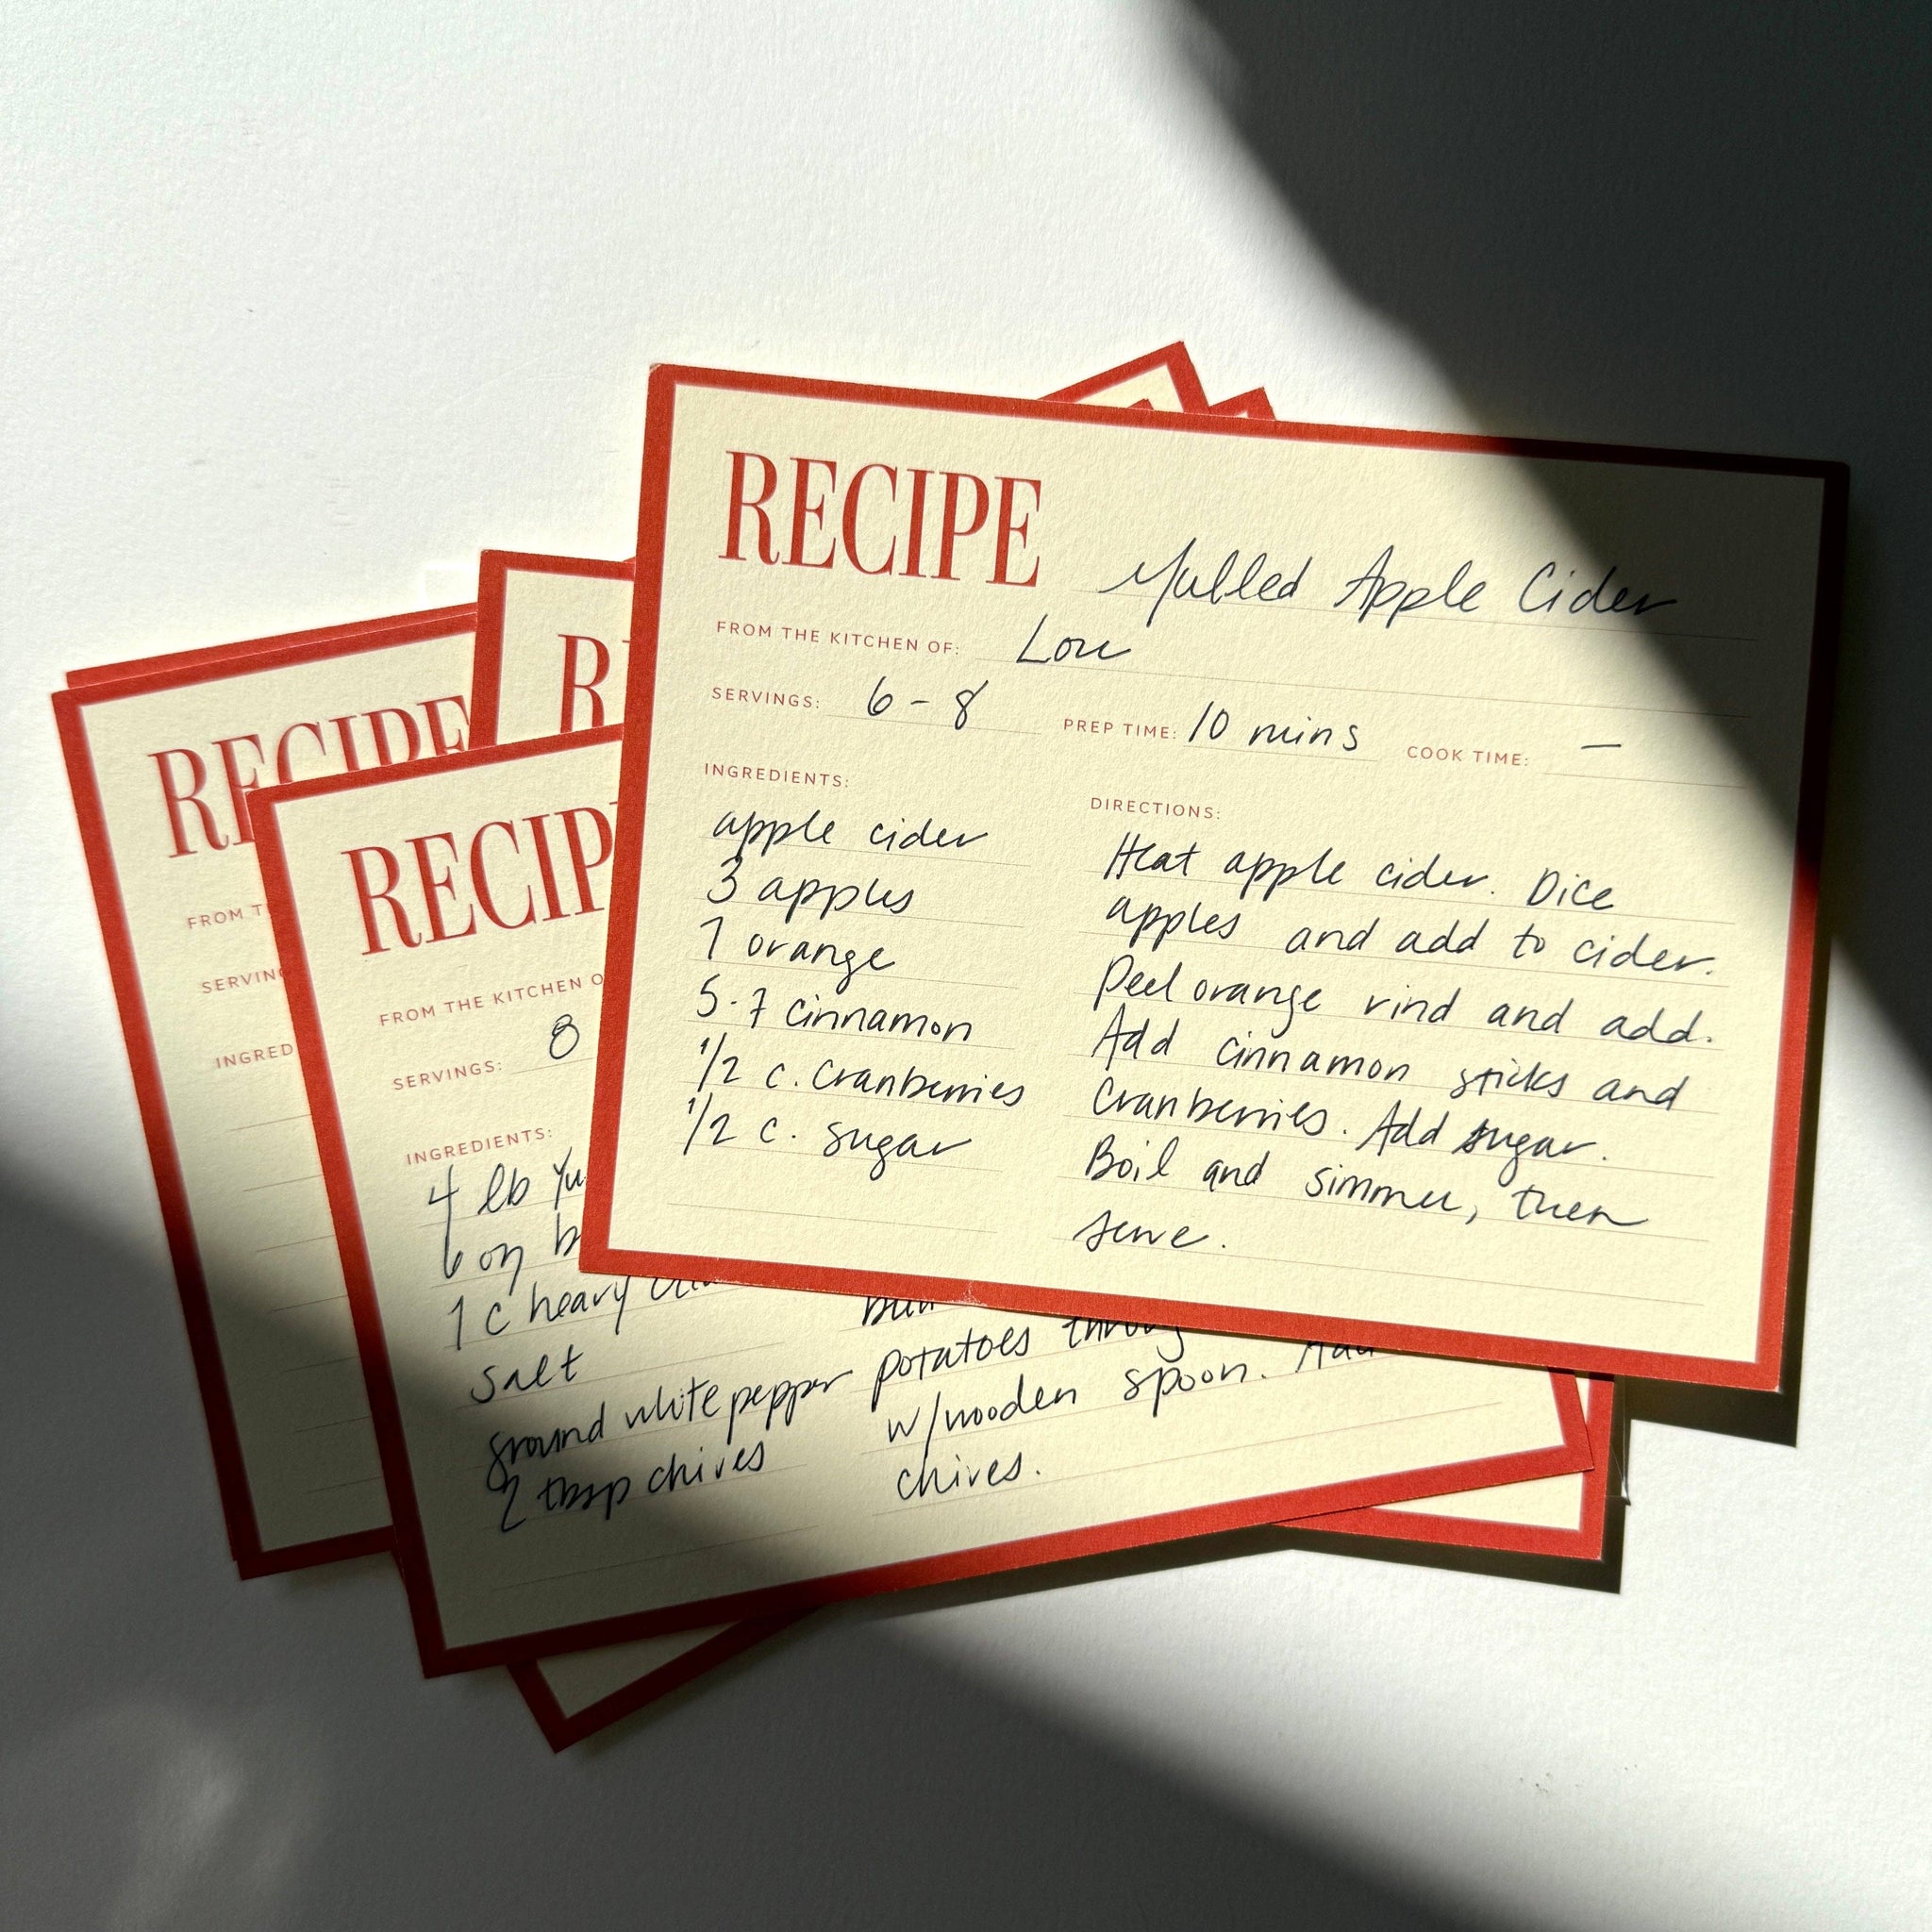 RECIPE Mulled Apple Cider
FROM THE KITCHEN OF: Lou
SERVINGS: 6-8 PREP TIME: 10 mins COOK TIME: —
INGREDIENTS:
apple cider
3 apples
1 orange
5-7 cinnamon
1/2 c. cranberries
1/2 c. sugar
DIRECTIONS:
Heat apple cider. Dice
apples and add to cider.
Peel orange rind and add.
Add cinnamon sticks and
cranberries. Add sugar.
Boil and simmer, then
serve.
RECIP
FROM THE KITCHEN O
SERVINGS: 8
INGREDIENTS:
4 lb Yu
6 oz b
1 c heavy
salt
ground white pepper
2 tbsp chives
potatoes
w/wooden spoon. Add
chives.
R
RECIPE
FROM T
SERVING
INGRED